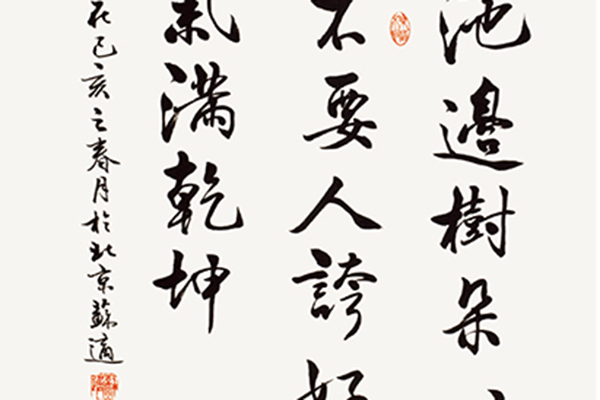 池邊樹朵
不要人誇好
氣滿乾坤
在己亥之春月於北京蘇適